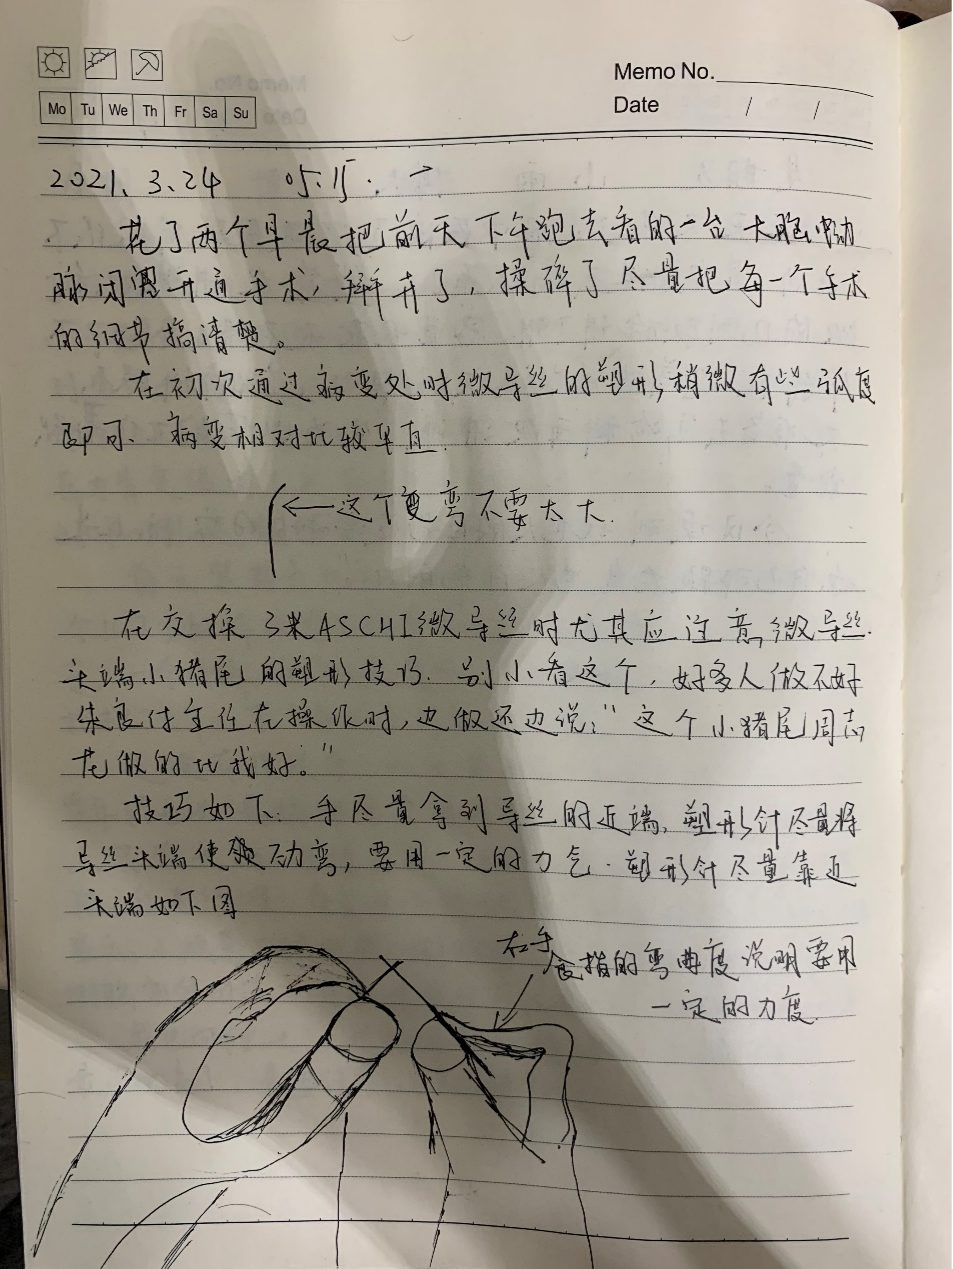 Memo No.
Mo Tu We Th Fr Sa Su
Date / /
2021、3、24 05:15.
花了两个早晨把前天下午跑去看的一台大脑中动
脉闭塞开通手术,掰开了,揉碎了尽量把每一个手术
的细节搞清楚。
在初次通过病变处时微导丝的塑形,稍微有些弧度
即可、病变相对比较平直
这个弯不要太大.
在交换3米ASCHI微导丝时尤其应注意,微导丝.
头端小猪尾的塑形技巧.别小看这个,好多人做不好
朱良付主任在操作时,也做还边说:“这个小猪尾周志
龙做的比我好。”
技巧如下:手尽量拿到导丝的近端、塑形针尽量将
导丝头端使劲弯,要用一定的力气.塑形针尽量靠近
头端如下图
右手
食指的弯曲度说明要用
一定的力度.